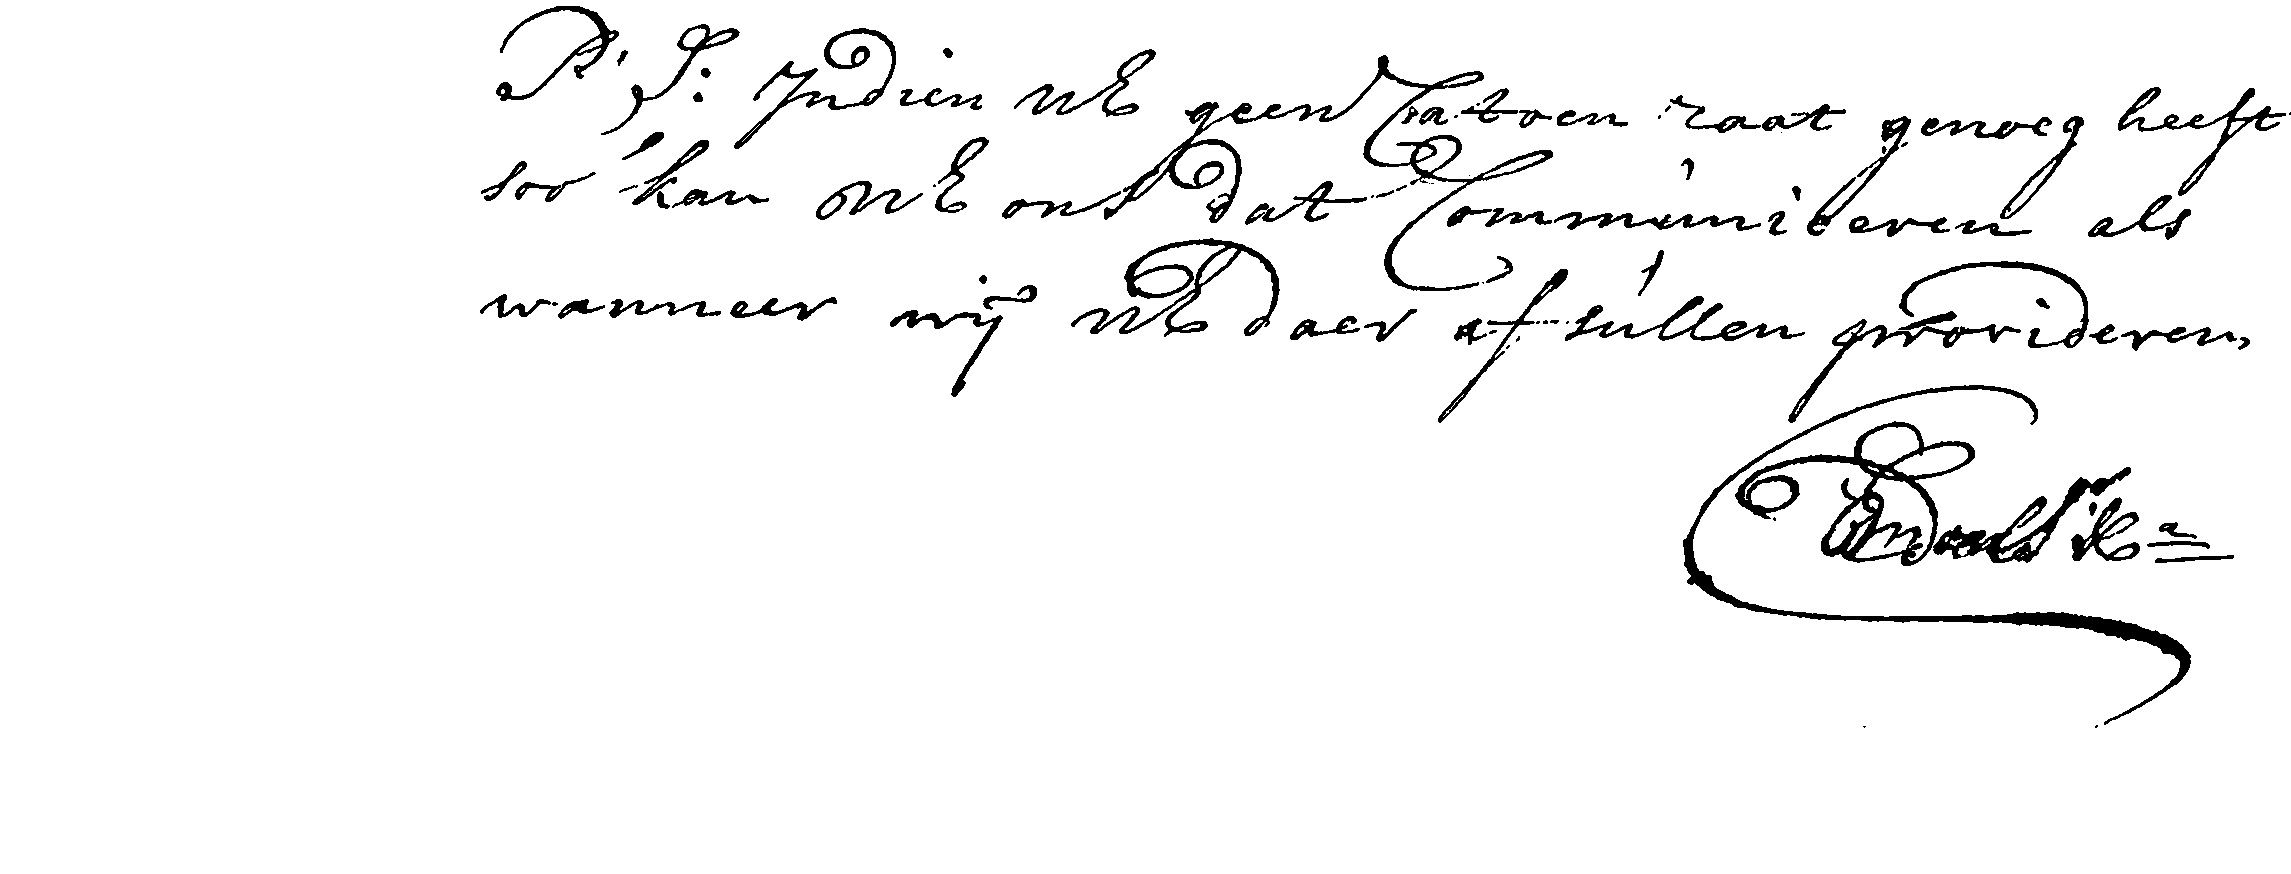 P: S: Indien UE geen Catoen raat genoeg heeft
soo kan UE ons dat Communiceren als
wanneer wij UE daer af sullen provideren,